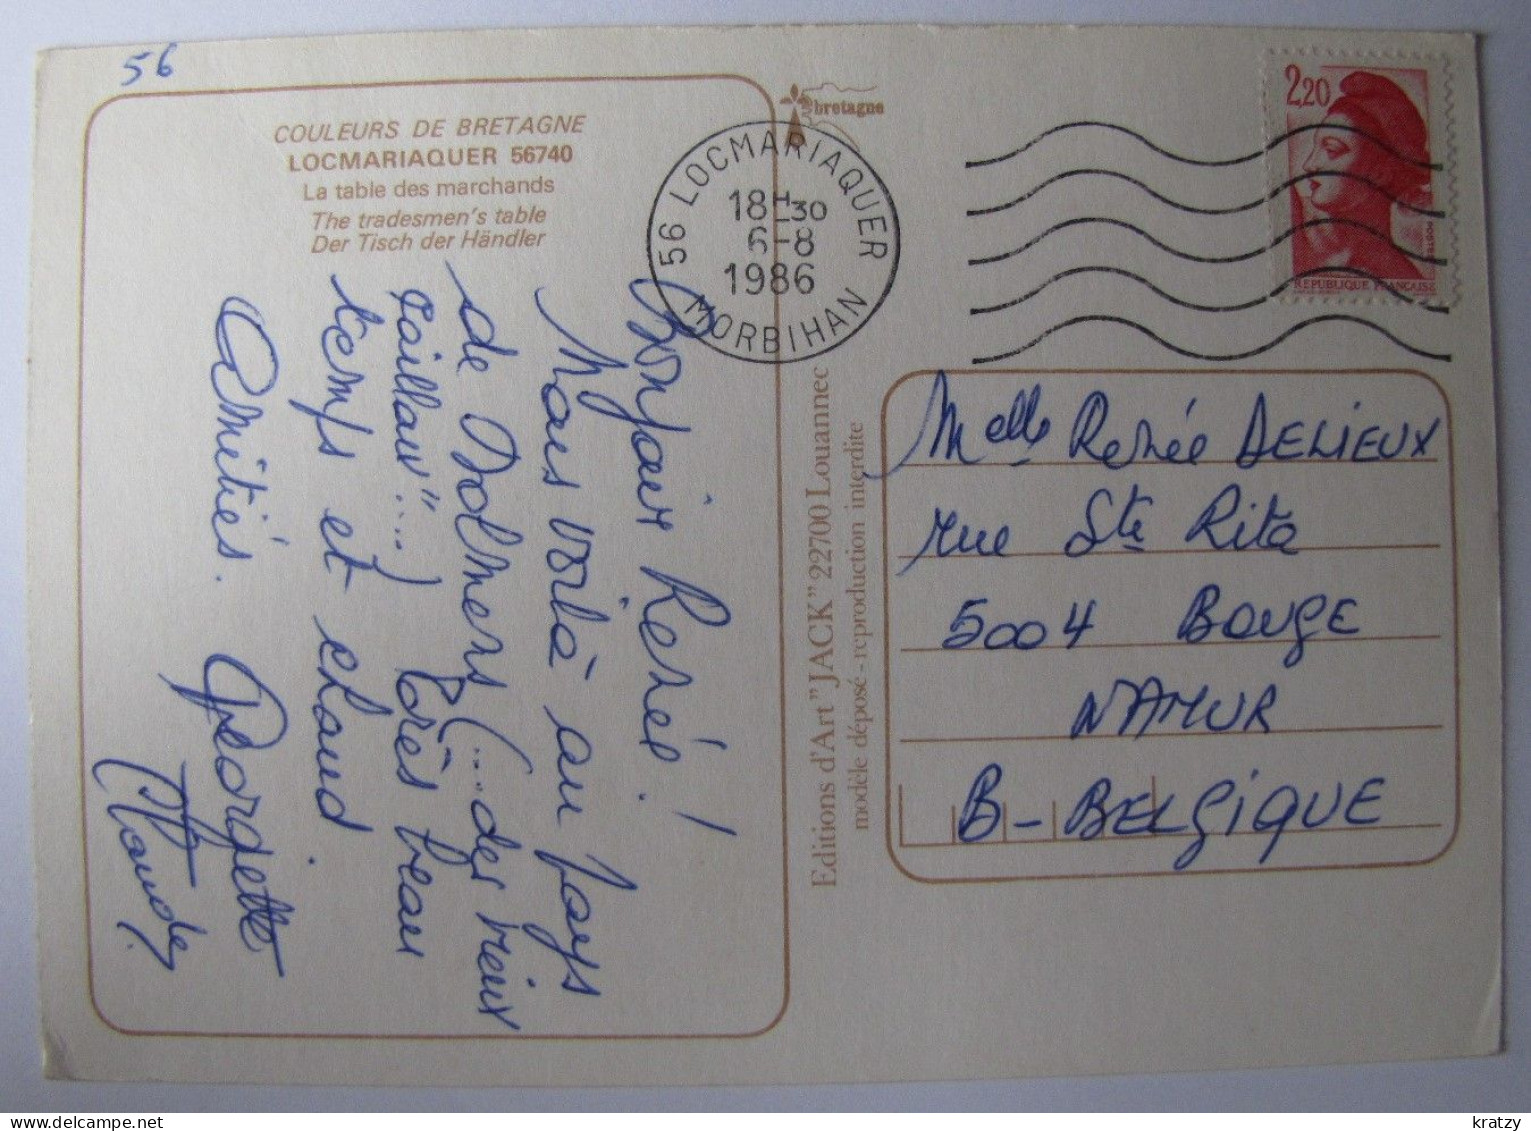 56
COULEURS DE BRETAGNE
LOCMARIAQUER 56740
La table des marchands
The tradesmen's table
Der Tisch der Händler
Bonjour Renée !
Nous voilà au pays
de Dolmens (... des vieux
cailloux"...) Très beau
temps et chaud.
Amitiés. Georgette
Claude.
bretagne
56 LOCMARIAQUER
18H30
6-8
1986
MORBIHAN
2,20
POSTES
REPUBLIQUE FRANÇAISE
Editions d'Art "JACK" 22700 Louannec
modèle déposé - reproduction interdite
Melle Renée DELIEUX
rue Ste Rita
5004 BOUGE
NAMUR
B-BELGIQUE
kratzy